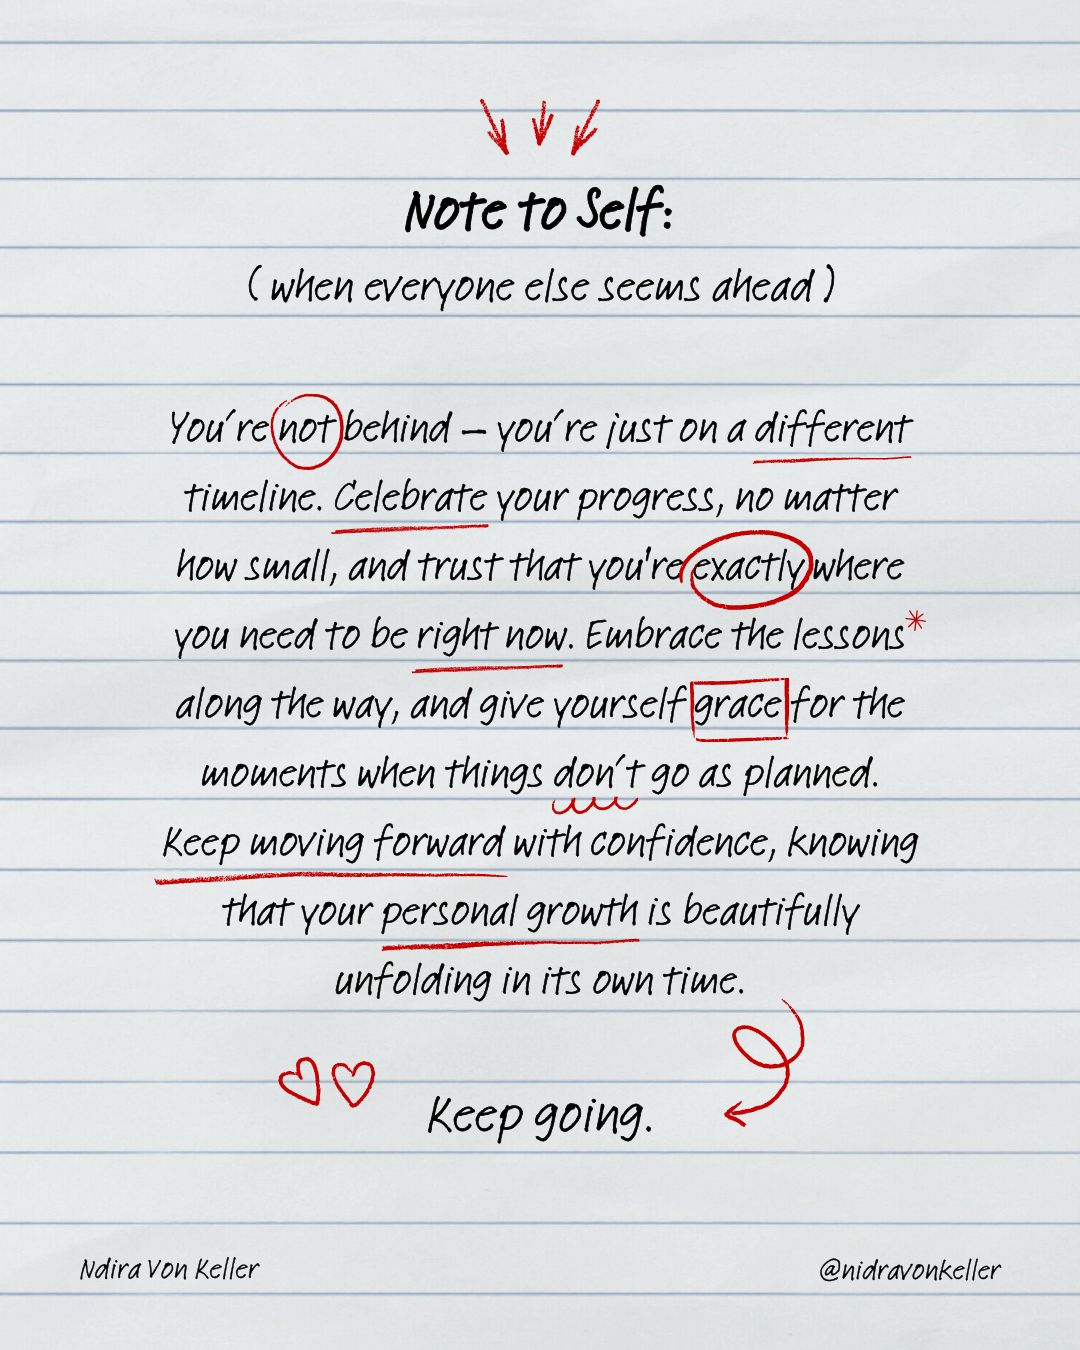 Note to Self:
( when everyone else seems ahead )
You're not behind – you're just on a different
timeline. Celebrate your progress, no matter
how small, and trust that you're exactly where
you need to be right now. Embrace the lessons*
along the way, and give yourself grace for the
moments when things don't go as planned.
Keep moving forward with confidence, knowing
that your personal growth is beautifully
unfolding in its own time.
Keep going.
Ndira Von Keller
@nidravonkeller